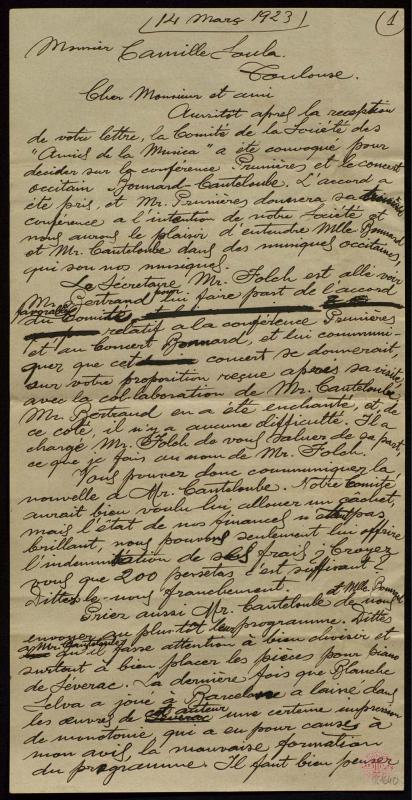 (14 Març 1923)
(1)
Monsieur Camille Soula.
Toulouse.
Cher Monsieur et ami
Aussitôt après la reception
de votre lettre, la Comité de la Société des
"Amics de la Musica" a éte convoqué pour
decider sur la conférence Prunières et le concert
occitain Bonnard-Canteloube. L'accord a
éte pris, et Mr. Prunières donnera sa
conférence a l'intention de notre Société et
nous aurons le plaisir d'entendre Mlle Bonnard
et Mr. Canteloube dans des musiques occitaines,
qui son nos musiques.
Le Sécretaire Mr. Folch est allé voir
Mr. Bertrand pour lui faire part de l'accord
favorable du Comité
relatif a la conférence Prunières
et au Concert Bonnard, et lui communi-
quer que cet concert se donnerait,
sur votre proposition reçue après sa visite,
avec la collaboration de Mr. Canteloube.
Mr. Bertrand en a éte enchanté, et, de
ce coté, il n'y a aucune difficulté. Il a
chargé Mr. Folch de vous saluer de sa part,
ce que je fais au nom de Mr. Folch.
Vous pouvez donc communiquer la
nouvelle a Mr. Canteloube. Notre Comité
aurait bien voulu lui allouer un cachet,
mais l'état de nos finances n'est pas
brillant, nous pouvons seulement lui offrire
l'indemnitation de ses frais. Croyez
vous que 200 pesetas c'est suffisant?
Dittes-le-nous franchement.
Priez aussi Mr. Canteloube et Mlle. Bonnard de nous
envoyer au plus tôt leur programme. Dittes
a Mr. Canteloube qu'il fasse attention à bien choisir et
surtout à bien placer les pièces pour piano
de Séverac. La dernière fois que Blanche
Selva a joué à Barcelone a laisé dans
les œuvres de cet auteur une certeine impression
de monotomie, qui a eu pour cause, à
mon avis, la mauvaise formation
du programme. Il faut bien penser